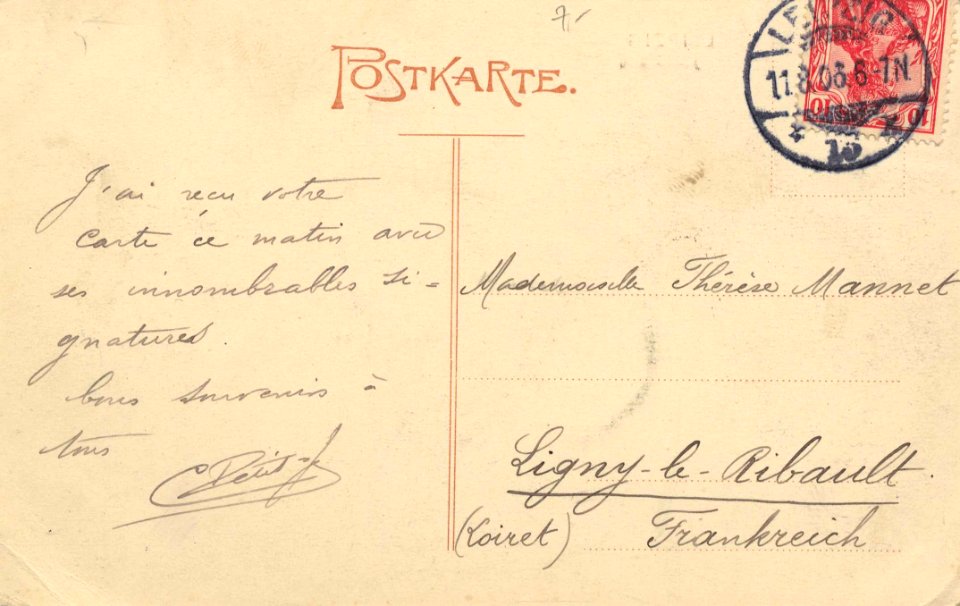 7.-
POSTKARTE.
LEIPZIG
11.8.08.6-7N
* 13 *
10 10
J'ai reçu votre
carte ce matin avec
ses innombrables si-
gnatures.
bons souvenirs à
tous
Mademoiselle Thérèse Mannet
Ligny-le-Ribault.
(Loiret) Frankreich